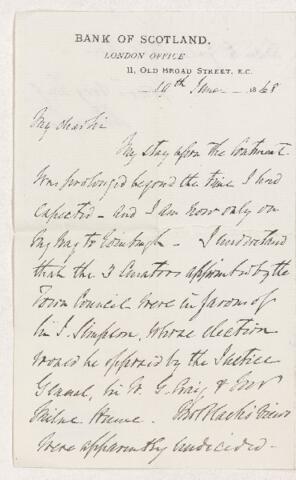 BANK OF SCOTLAND.
LONDON OFFICE
11, OLD BROAD STREET, E.C.
19th June 1868
My dear Sir
My stay upon the Continent
was prolonged beyond the time I had
expected - and I am now only on
my way to Edinburgh - I understand
that the 3 Curators appointed by the
Town Council were in favour of
Sir J. Simpson, whose election
would be opposed by the Justice
General, Sir W. G. Craig &
Milne Home. Black's views
were apparently undecided -